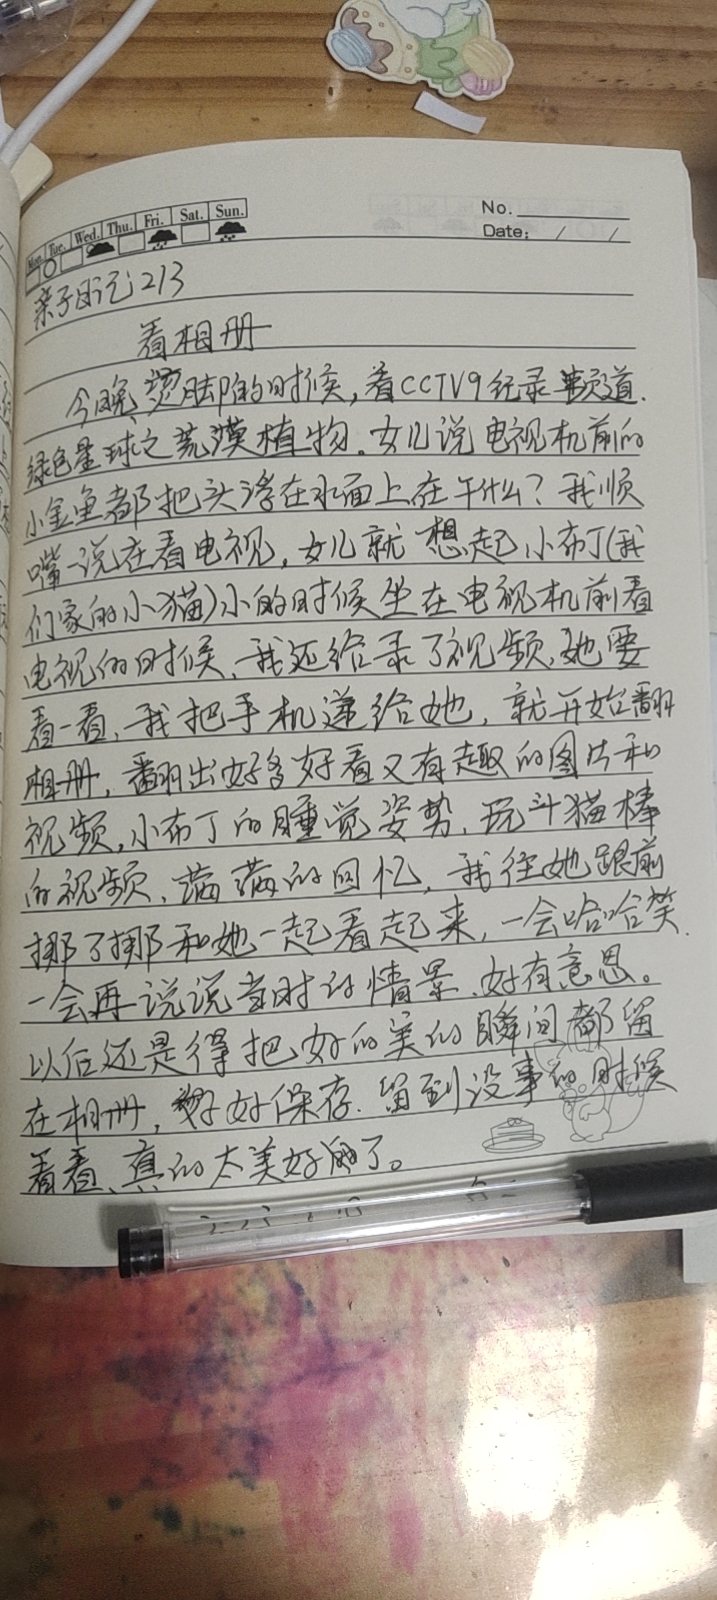 Mon. Tue. Wed. Thu. Fri. Sat. Sun.
No.
Date: / /
亲子日记213
看相册
今晚烫脚的时候,看CCTV9纪录频道.
绿色星球之荒漠植物。女儿说电视机前的
小金鱼都把头浮在水面上在干什么?我顺
嘴一说在看电视,女儿就想起小布丁(我
们家的小猫)小的时候坐在电视机前看
电视的时候、我还给录了视频,她要
看一看,我把手机递给她,就开始翻
相册,翻出好多好看又有趣的图片和
视频,小布丁的睡觉姿势、玩斗猫棒
的视频、满满的回忆,我往她跟前
挪了挪和她一起看起来,一会哈哈笑.
一会再说说当时的情景、好有意思。
以后还是得把好的美的瞬间都留
在相册,好好保存.留到没事的时候
看看、真的太美好了。